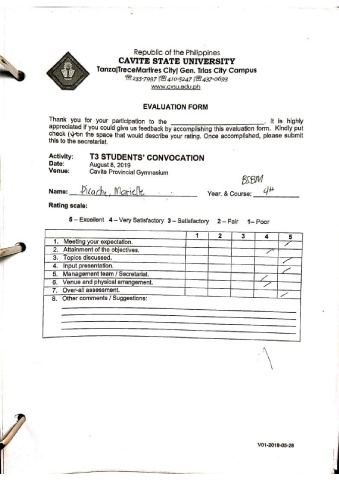 Republic of the Philippines
CAVITE STATE UNIVERSITY
Tanza|TreceMartires City| Gen. Trias City Campus
☏235-7997 ☏410-5247 ☏437-0693
www.cvsu.edu.ph
EVALUATION FORM
Thank you for your participation to the ____________________. It is highly
appreciated if you could give us feedback by accomplishing this evaluation form. Kindly put
check (✓) on the space that would describe your rating. Once accomplished, please submit
this to the secretariat.
Activity: T3 STUDENTS' CONVOCATION
Date: August 8, 2019
Venue: Cavite Provincial Gymnasium
BSBM
Name: Marielle Year. & Course:
Rating scale:
5 – Excellent 4 – Very Satisfactory 3 – Satisfactory 2 – Fair 1 – Poor
1 2 3 4 5
1. Meeting your expectation. ✓
2. Attainment of the objectives. ✓
3. Topics discussed. ✓
4. Input presentation. ✓
5. Management team / Secretariat. ✓
6. Venue and physical arrangement. ✓
7. Over-all assessment. ✓
8. Other comments / Suggestions:
V01-2018-05-28